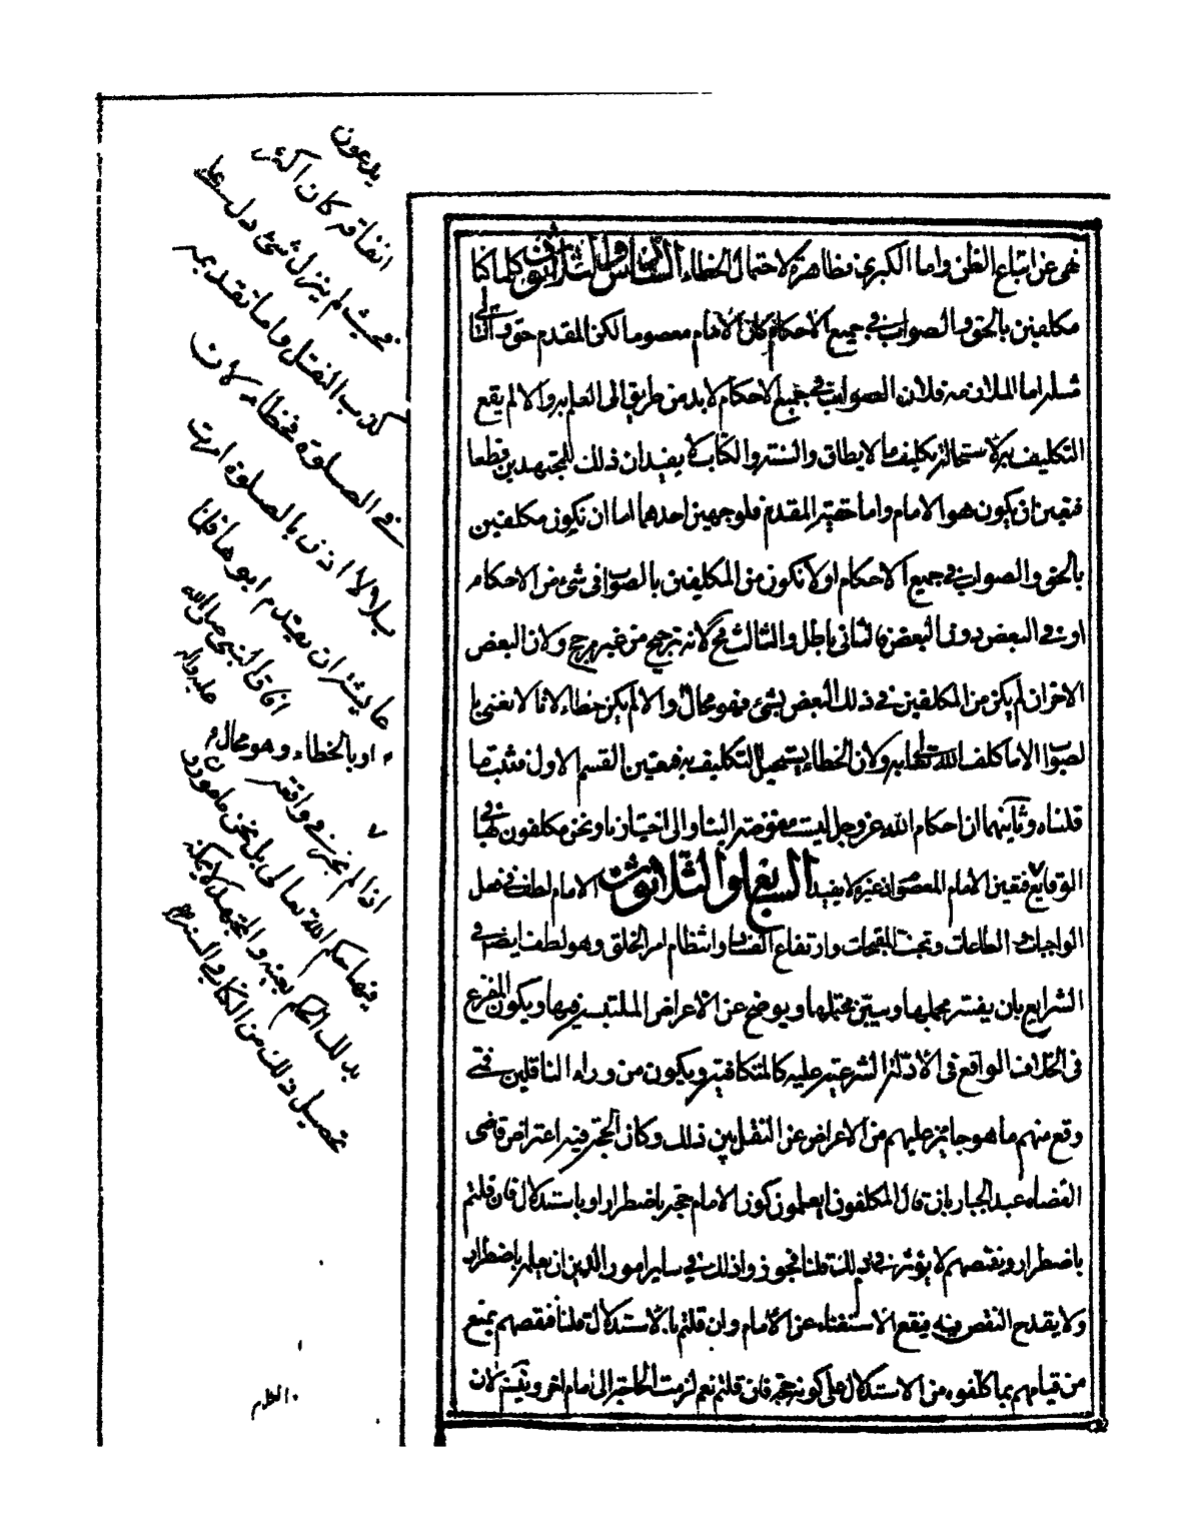 نهى عن اتباع الظن واما الكبرى فظاهرة لاحتمال الخطاء السادس والثلاثون كلما كنا
مكلفين بالحق والصواب في جميع الاحكام كان الامام معصوما لكن المقدم حق فالتالي
مثله اما الملازمة فلان الصواب في جميع الاحكام لابد من طريق الى العلم به والا لم يقع
التكليف به لاستحالة تكليف ما لا يطاق والسنة والكتاب لا يفيدان ذلك للمجتهدين قطعا
فتعين ان يكون هو الامام واما حقية المقدم فلوجهين احدهما اما ان نكون مكلفين
بالحق والصواب في جميع الاحكام او لا نكون من المكلفين بالصواب في شيء من الاحكام
او في البعض دون البعض والثاني باطل والثالث مح لانه ترجيح من غير مرجح ولان البعض
الاخر ان لم يكن من المكلفين في ذلك البعض بشيء فهو محال والا لم يكن خطاء لانا لا نعنى با
لصواب الا ما كلف الله تعالى به ولان الخطاء يستحيل التكليف به فتعين القسم الاول فثبت ما
قلناه وثانيهما ان احكام الله عز وجل ليست مفوضة الينا والى اختيارنا ونحن مكلفون في
الوقايع فتعين الامام المعصوم اذ غيره لا يفيد السابع والثلاثون الامام لطف في فعل
الواجبات والطاعات وتجنب المقبحات وارتفاع الفساد وانتظام امر الخلق وهو لطف ايضا في
الشرايع بان يفسر مجملها ويبين محتملها ويوضح عن الاغراض الملتبسة فيها ويكون المفزع
في الخلاف الواقع في الادلة الشرعية عليه كالمتكافية ويكون من وراء الناقلين فمتى
وقع منهم ما هو جايز عليهم من الاعراض عن النقل بين ذلك وكان الحجة فيه اعترض قاضى
القضاة عبد الجبار بان قال المكلفون ايعلمون كون الامام حجة باضطرار او باستدلال فان قلتم
باضطرار ونقصهم لا يؤثر في ذلك قلنا فجوزوا ذلك في ساير امور الدين ان يعلم باضطرار
ولا يقدح النقص فيه فيقع الاستغناء عن الامام وان قلتم بالاستدلال قلنا فنقصهم يمنع
من قيامهم بما كلفوه من الاستدلال على كونه حجة فان قلتم نعم لزمت الحاجة الى امام اخر ونفسه لان
يدعون
انفاقه كان اكثر
فحيث لم ينزل شئ دل على
كذب النقل واما تقديمه
في الصلوة فخطا لان
بلالا اذن بالصلوة امرت
عايشة ان يقدم ابوها فلما
افاق النبي صلى الله
عليه واله
او بالخطاء وهو محال
اذا لم نجز في واقعة
فيها حكم الله تعالى بل نحن مامورون
بذلك الحكم بعينه والمجتهد لا يمكنه
تحصيل ذلك من الكتاب والسنة